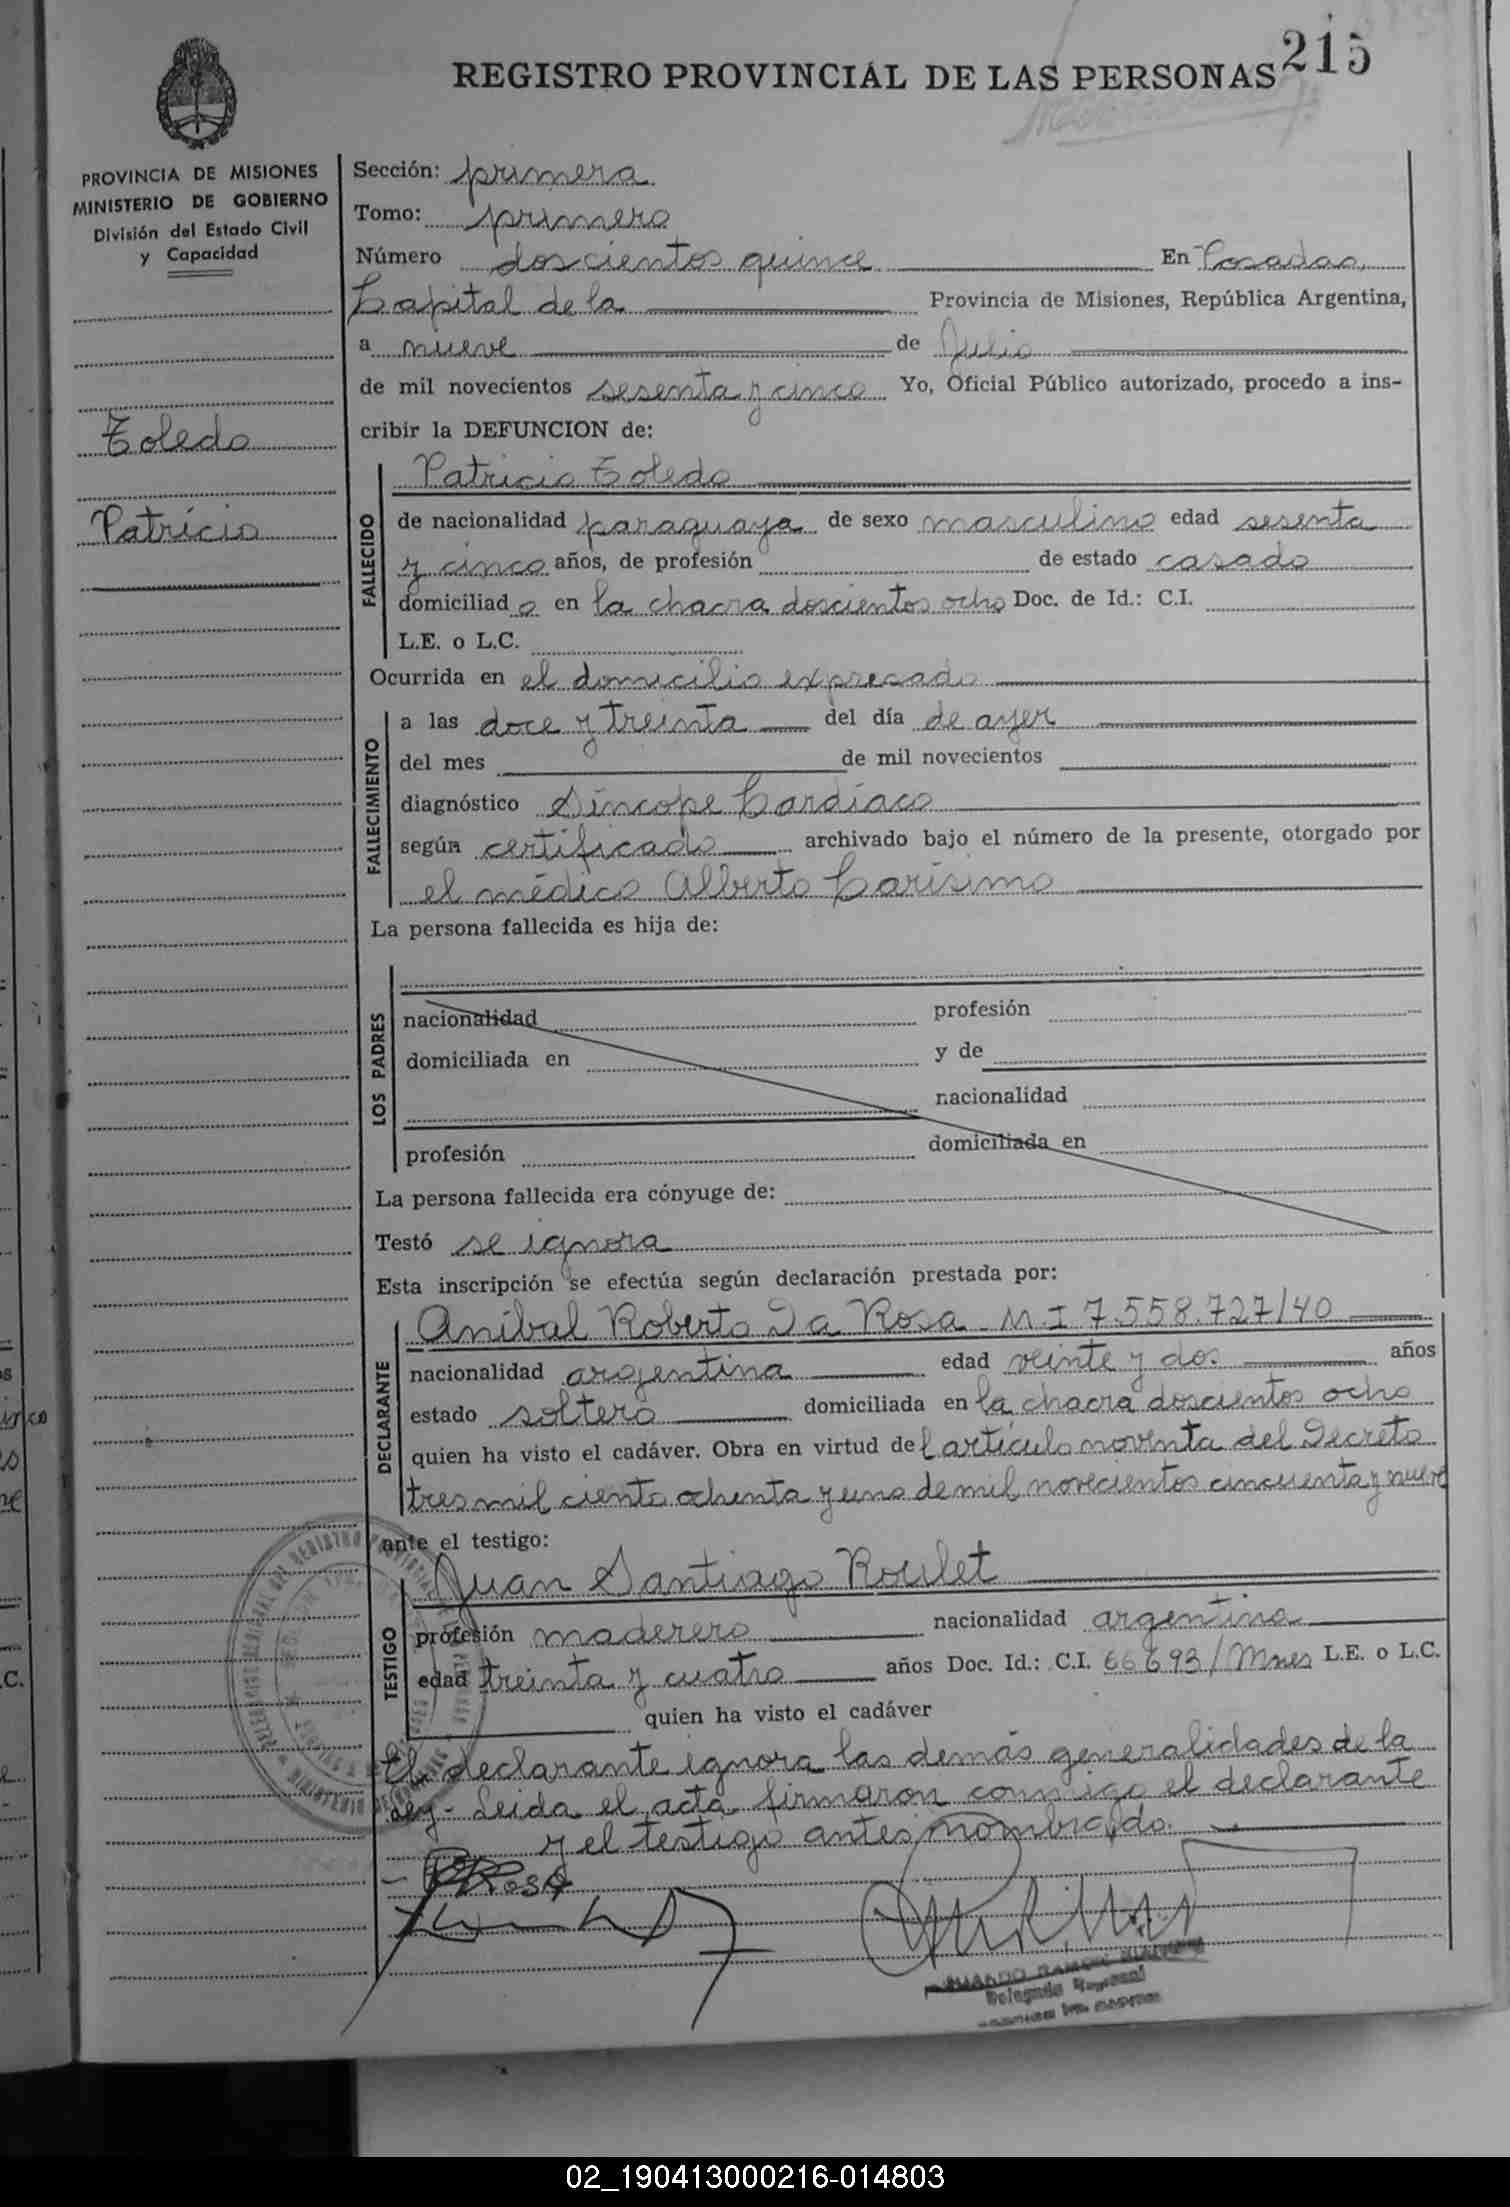 215
REGISTRO PROVINCIAL DE LAS PERSONAS
PROVINCIA DE MISIONES
MINISTERIO DE GOBIERNO
División del Estado Civil
y Capacidad
Toledo
Patricio
Sección: primera
Tomo: primero
Número doscientos quince En Posadas,
Capital de la Provincia de Misiones, República Argentina,
a nueve de Julio
de mil novecientos sesenta y cinco Yo, Oficial Público autorizado, procedo a ins-
cribir la DEFUNCION de:
FALLECIDO
Patricio Toledo
de nacionalidad paraguaya de sexo masculino edad sesenta
y cinco años, de profesión de estado casado
domiciliad o en la chacra doscientos ocho Doc. de Id.: C.I.
L.E. o L.C.
Ocurrida en el domicilio expresado
FALLECIMIENTO
a las doce y treinta del día de ayer
del mes de mil novecientos
diagnóstico Síncope Cardíaco
según certificado archivado bajo el número de la presente, otorgado por
el médico Alberto Carísimo
La persona fallecida es hija de:
LOS PADRES
nacionalidad profesión
domiciliada en y de
nacionalidad
profesión domiciliada en
La persona fallecida era cónyuge de:
Testó se ignora
Esta inscripción se efectúa según declaración prestada por:
DECLARANTE
Aníbal Roberto Da Rosa M I 7.558.727/40
nacionalidad argentina edad veinte y dos años
estado soltero domiciliada en la chacra doscientos ocho
quien ha visto el cadáver. Obra en virtud del artículo noventa del Decreto
tres mil ciento ochenta y uno de mil novecientos cincuenta y nueve
ante el testigo:
TESTIGO
Juan Santiago Roulet
profesión maderero nacionalidad argentina
edad treinta y cuatro años Doc. Id.: C.I. 66693/Mnes L.E. o L.C.
quien ha visto el cadáver
El declarante ignora las demás generalidades de la
ley - Leida el acta firmaron conmigo el declarante
y el testigo antes nombrado.
Rosa
Delegado
02_190413000216-014803